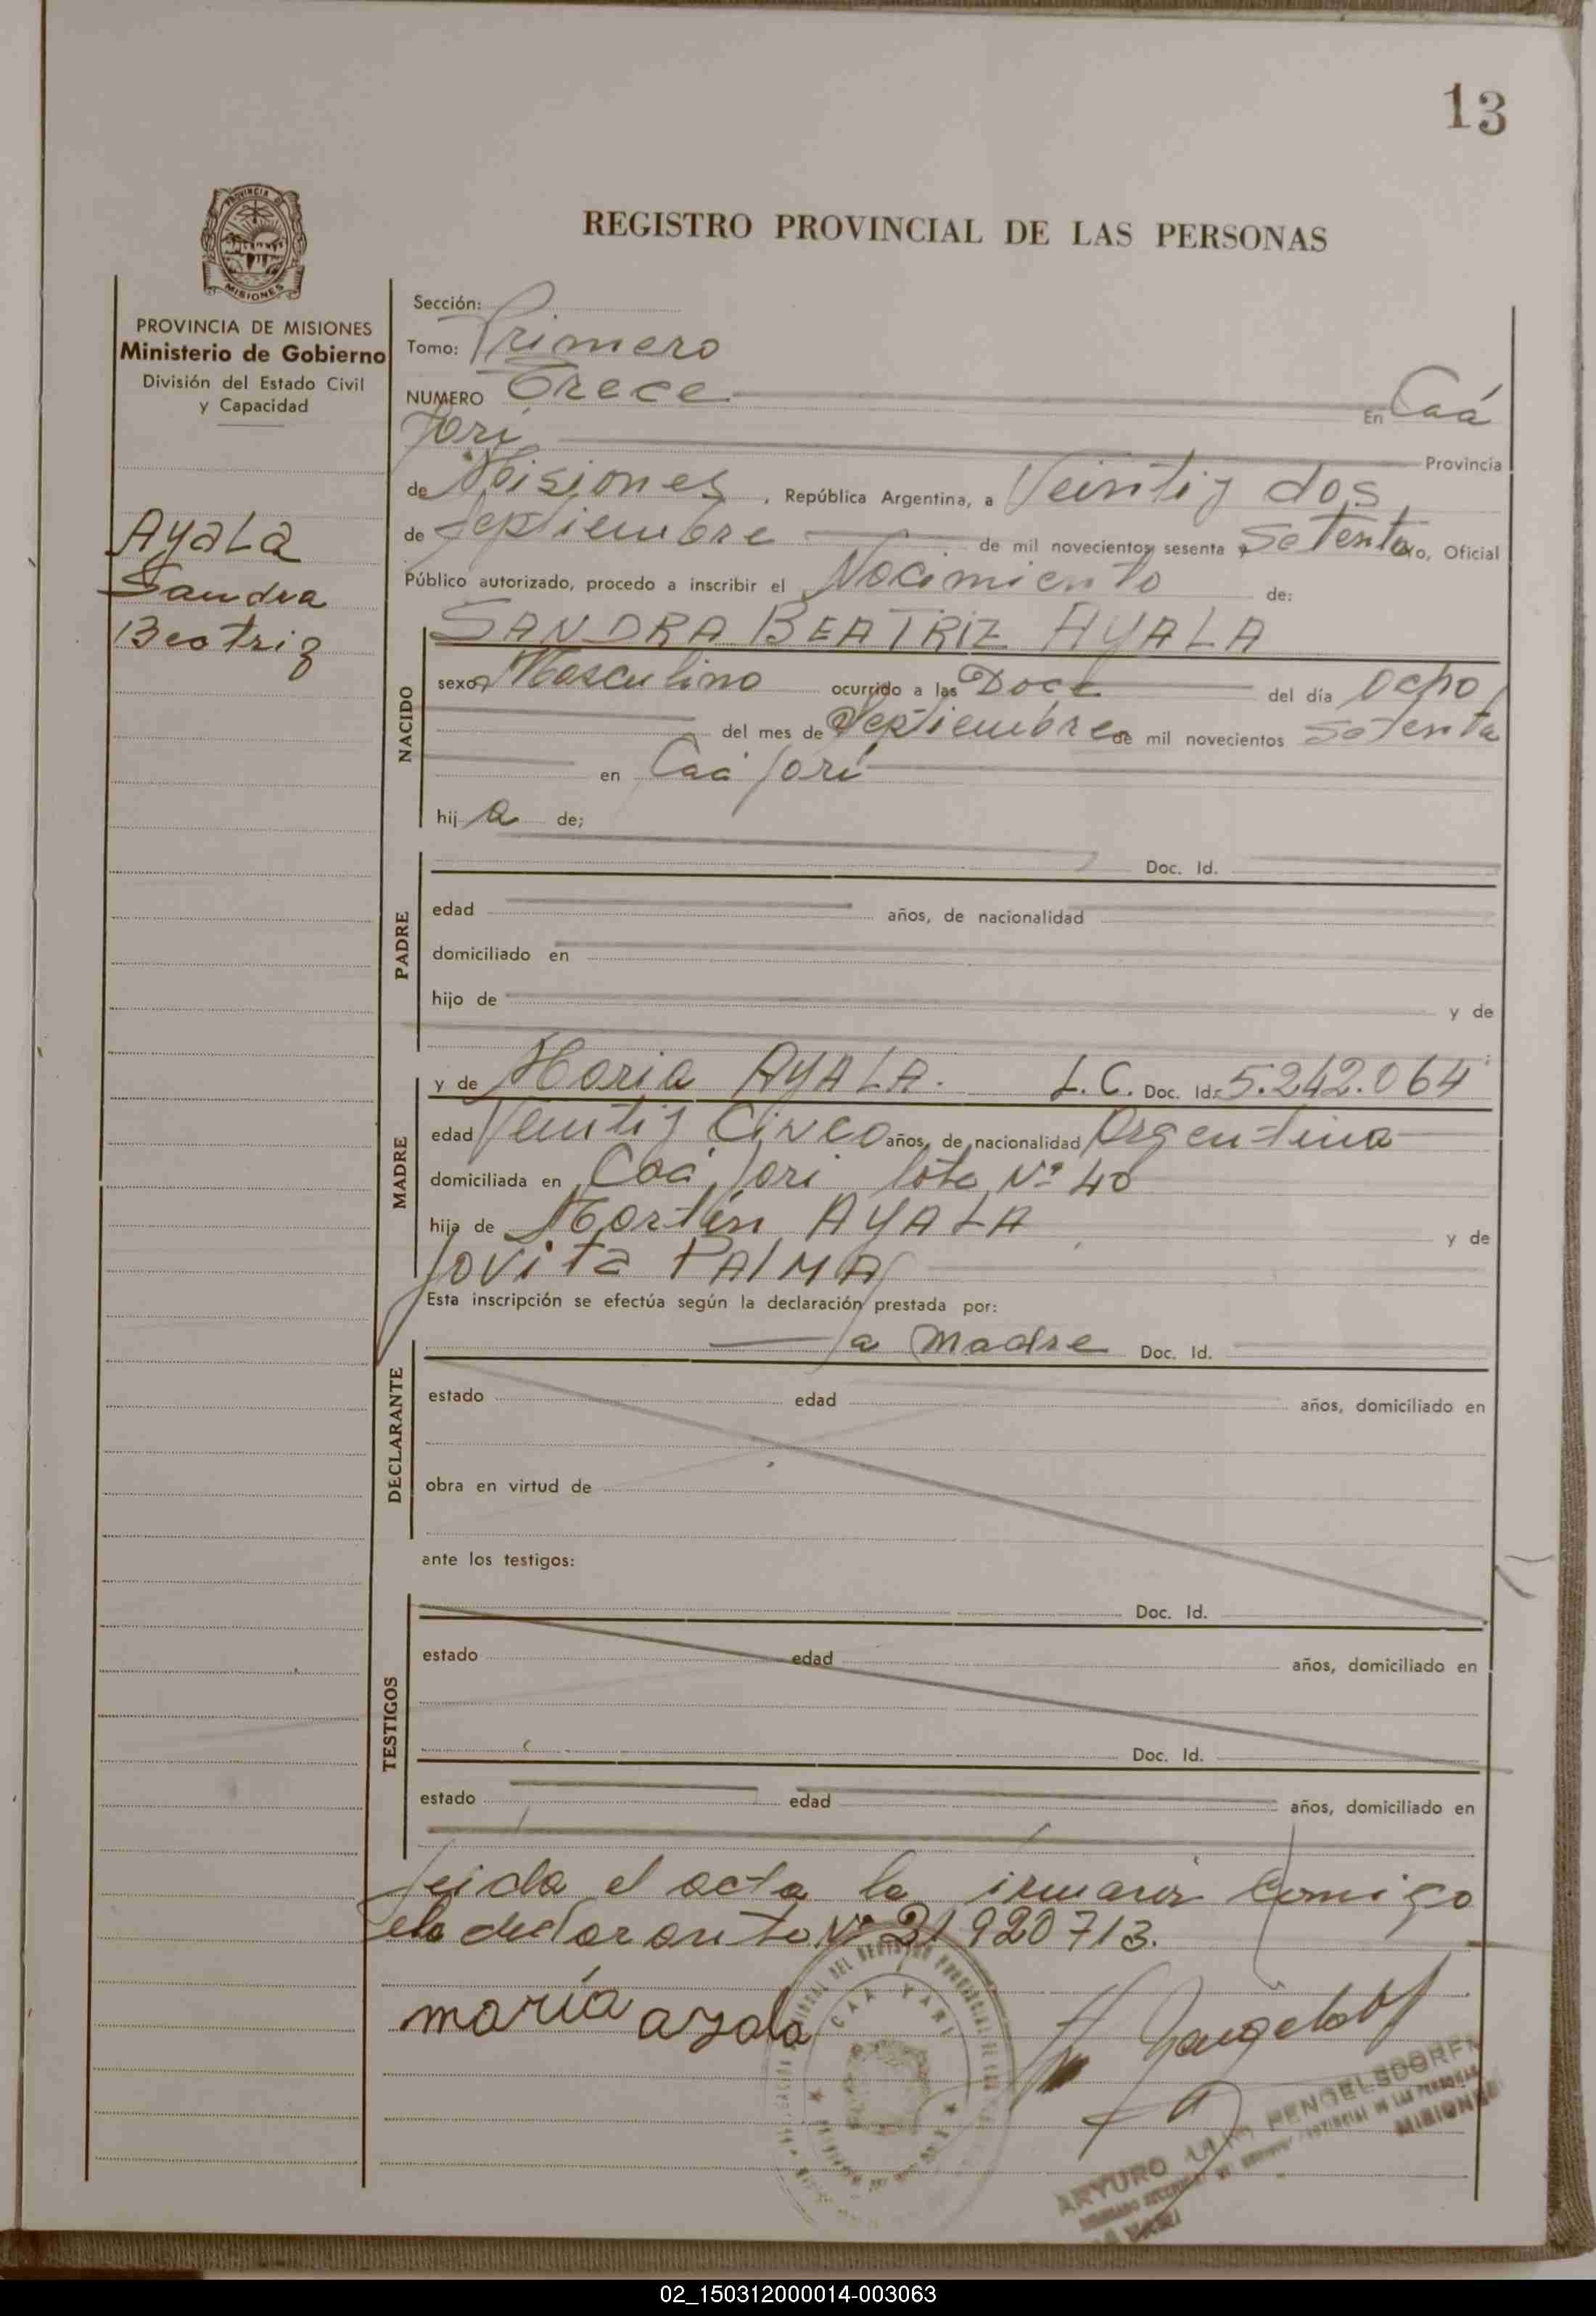 13
PROVINCIA DE
MISIONES
REGISTRO PROVINCIAL DE LAS PERSONAS
PROVINCIA DE MISIONES
Ministerio de Gobierno
División del Estado Civil
y Capacidad
Ayala
Sandra
Beatriz
Sección:
Tomo: Primero
NUMERO Trece En Caá
Yarí Provincia
de Misiones, República Argentina, a Veinti y dos
de Septiembre de mil novecientos sesenta y Setenta yo, Oficial
Público autorizado, procedo a inscribir el Nacimiento de:
NACIDO
SANDRA BEATRIZ AYALA
sexo Masculino ocurrido a las Doce del día Ocho
del mes de Septiembre de mil novecientos Setenta
en Caá Yarí
hij a de;
PADRE
Doc. Id.
edad años, de nacionalidad
domiciliado en
hijo de y de
MADRE
y de Maria AYALA. L.C. Doc. Id. 5.242.064
edad Veinti y Cinco años, de nacionalidad Argentina
domiciliada en Caá Yarí lote Nº 40
hija de Martín AYALA y de
Jovita PALMA
Esta inscripción se efectúa según la declaración prestada por:
DECLARANTE
la madre Doc. Id.
estado edad años, domiciliado en
obra en virtud de
ante los testigos:
TESTIGOS
Doc. Id.
estado edad años, domiciliado en
Doc. Id.
estado edad años, domiciliado en
Leida el acta la comigo
Nº 21920713.
maría ayala
CAA YARI
ARTURO PENGELSDORF
MISIONES
02_150312000014-003063